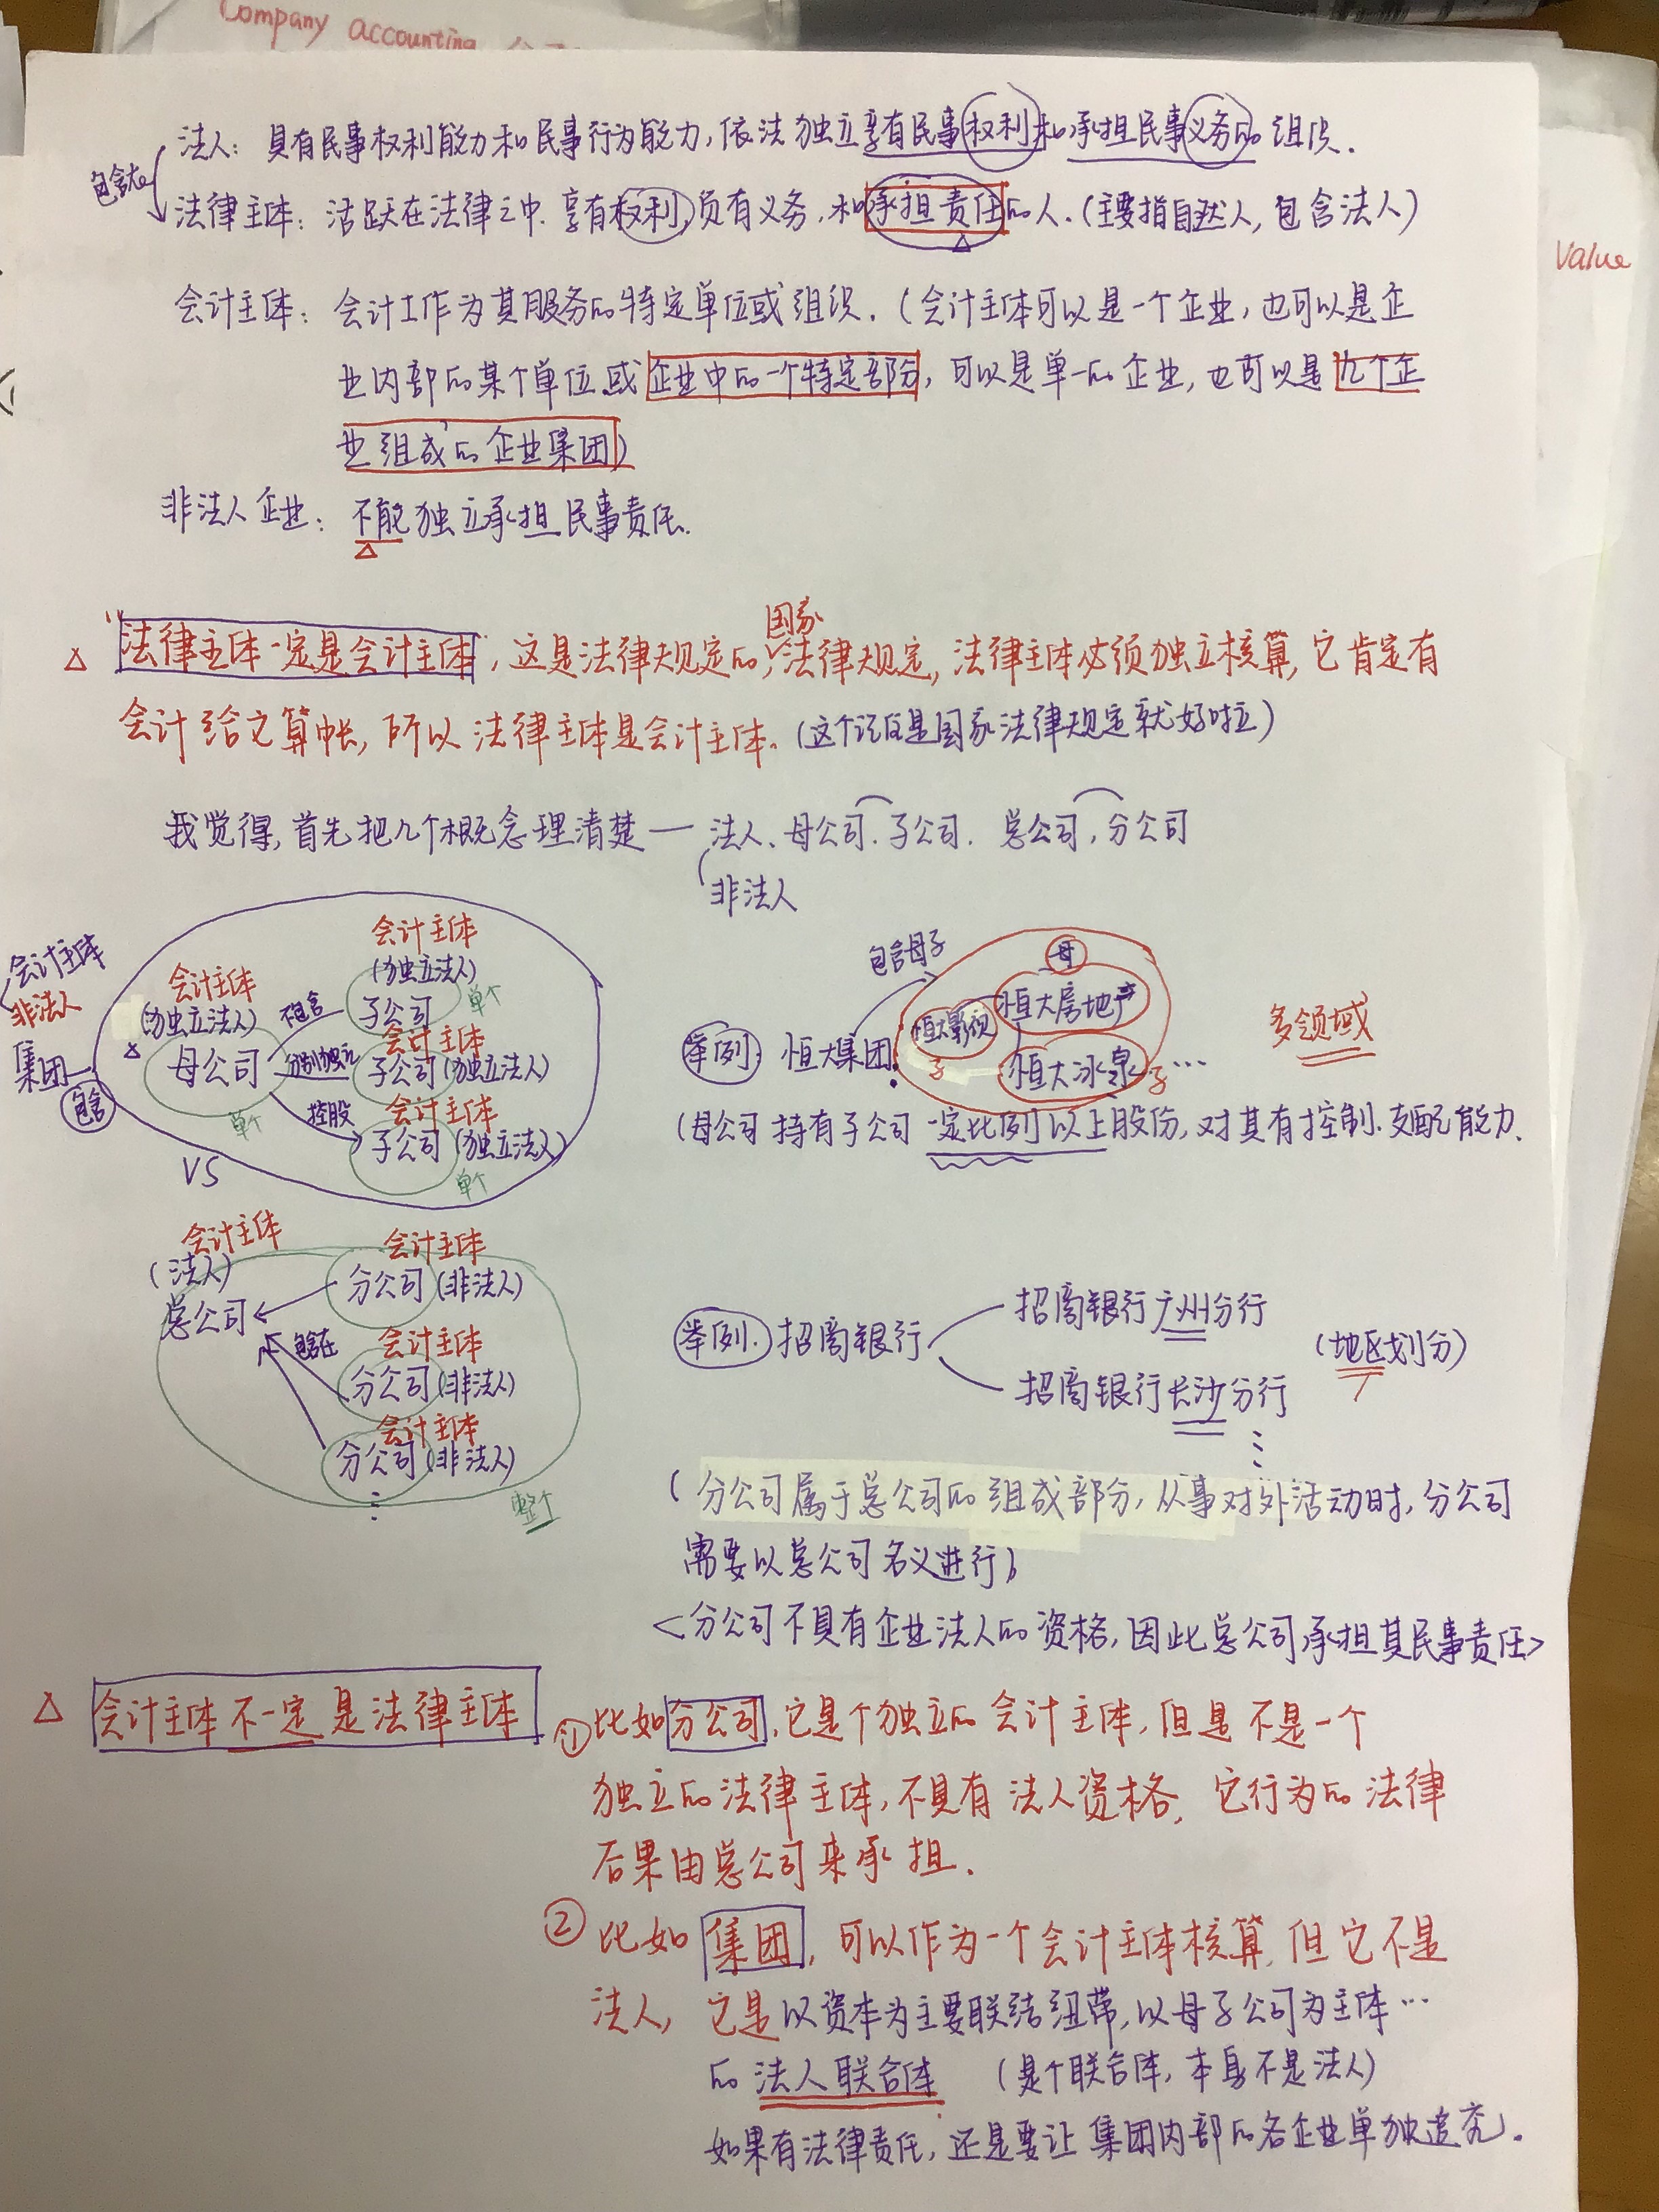 Company accounting
Value
法人：具有民事权利能力和民事行为能力，依法独立享有民事权利和承担民事义务的组织．
包含在
法律主体：活跃在法律之中．享有权利，负有义务，和承担责任的人．（主要指自然人，包含法人）
会计主体：会计工作为其服务的特定单位或组织．（会计主体可以是一个企业，也可以是企
业内部的某个单位或企业中的一个特定部分，可以是单一的企业，也可以是几个企
业组成的企业集团）
非法人企业：不能独立承担民事责任．
△ "法律主体一定是会计主体"，这是法律规定的，国家法律规定，法律主体必须独立核算，它肯定有
会计给它算帐，所以法律主体是会计主体。（这个记住是国家法律规定就好啦）
我觉得，首先把几个概念理清楚— 法人、母公司．子公司． 总公司，分公司
非法人
会计主体
非法人
集团
包含
会计主体
（独立法人）
母公司
单个
不包含
分别独立
控股
会计主体
（独立法人）
子公司
单个
会计主体
子公司（独立法人）
会计主体
子公司（独立法人）
单个
VS
举例：恒大集团
包含母子
母
恒大房地产
恒大影视
子
恒大冰泉 子 …
多领域
（母公司持有子公司一定比例以上股份，对其有控制．支配能力．
会计主体
（法人）
总公司
包含在
会计主体
分公司（非法人）
会计主体
分公司（非法人）
会计主体
分公司（非法人）
整个
举例．招商银行
招商银行广州分行
招商银行长沙分行
（地区划分）
（分公司属于总公司的组成部分，从事对外活动时，分公司
需要以总公司名义进行）
<分公司不具有企业法人的资格，因此总公司承担其民事责任>
△ 会计主体不一定是法律主体
①比如分公司，它是个独立的会计主体，但是不是一个
独立的法律主体，不具有法人资格，它行为的法律
后果由总公司来承担．
②比如集团，可以作为一个会计主体核算，但它不是
法人，它是以资本为主要联结纽带，以母子公司为主体…
的法人联合体 （是个联合体，本身不是法人）
如果有法律责任，还是要让集团内部的各企业单独追究．